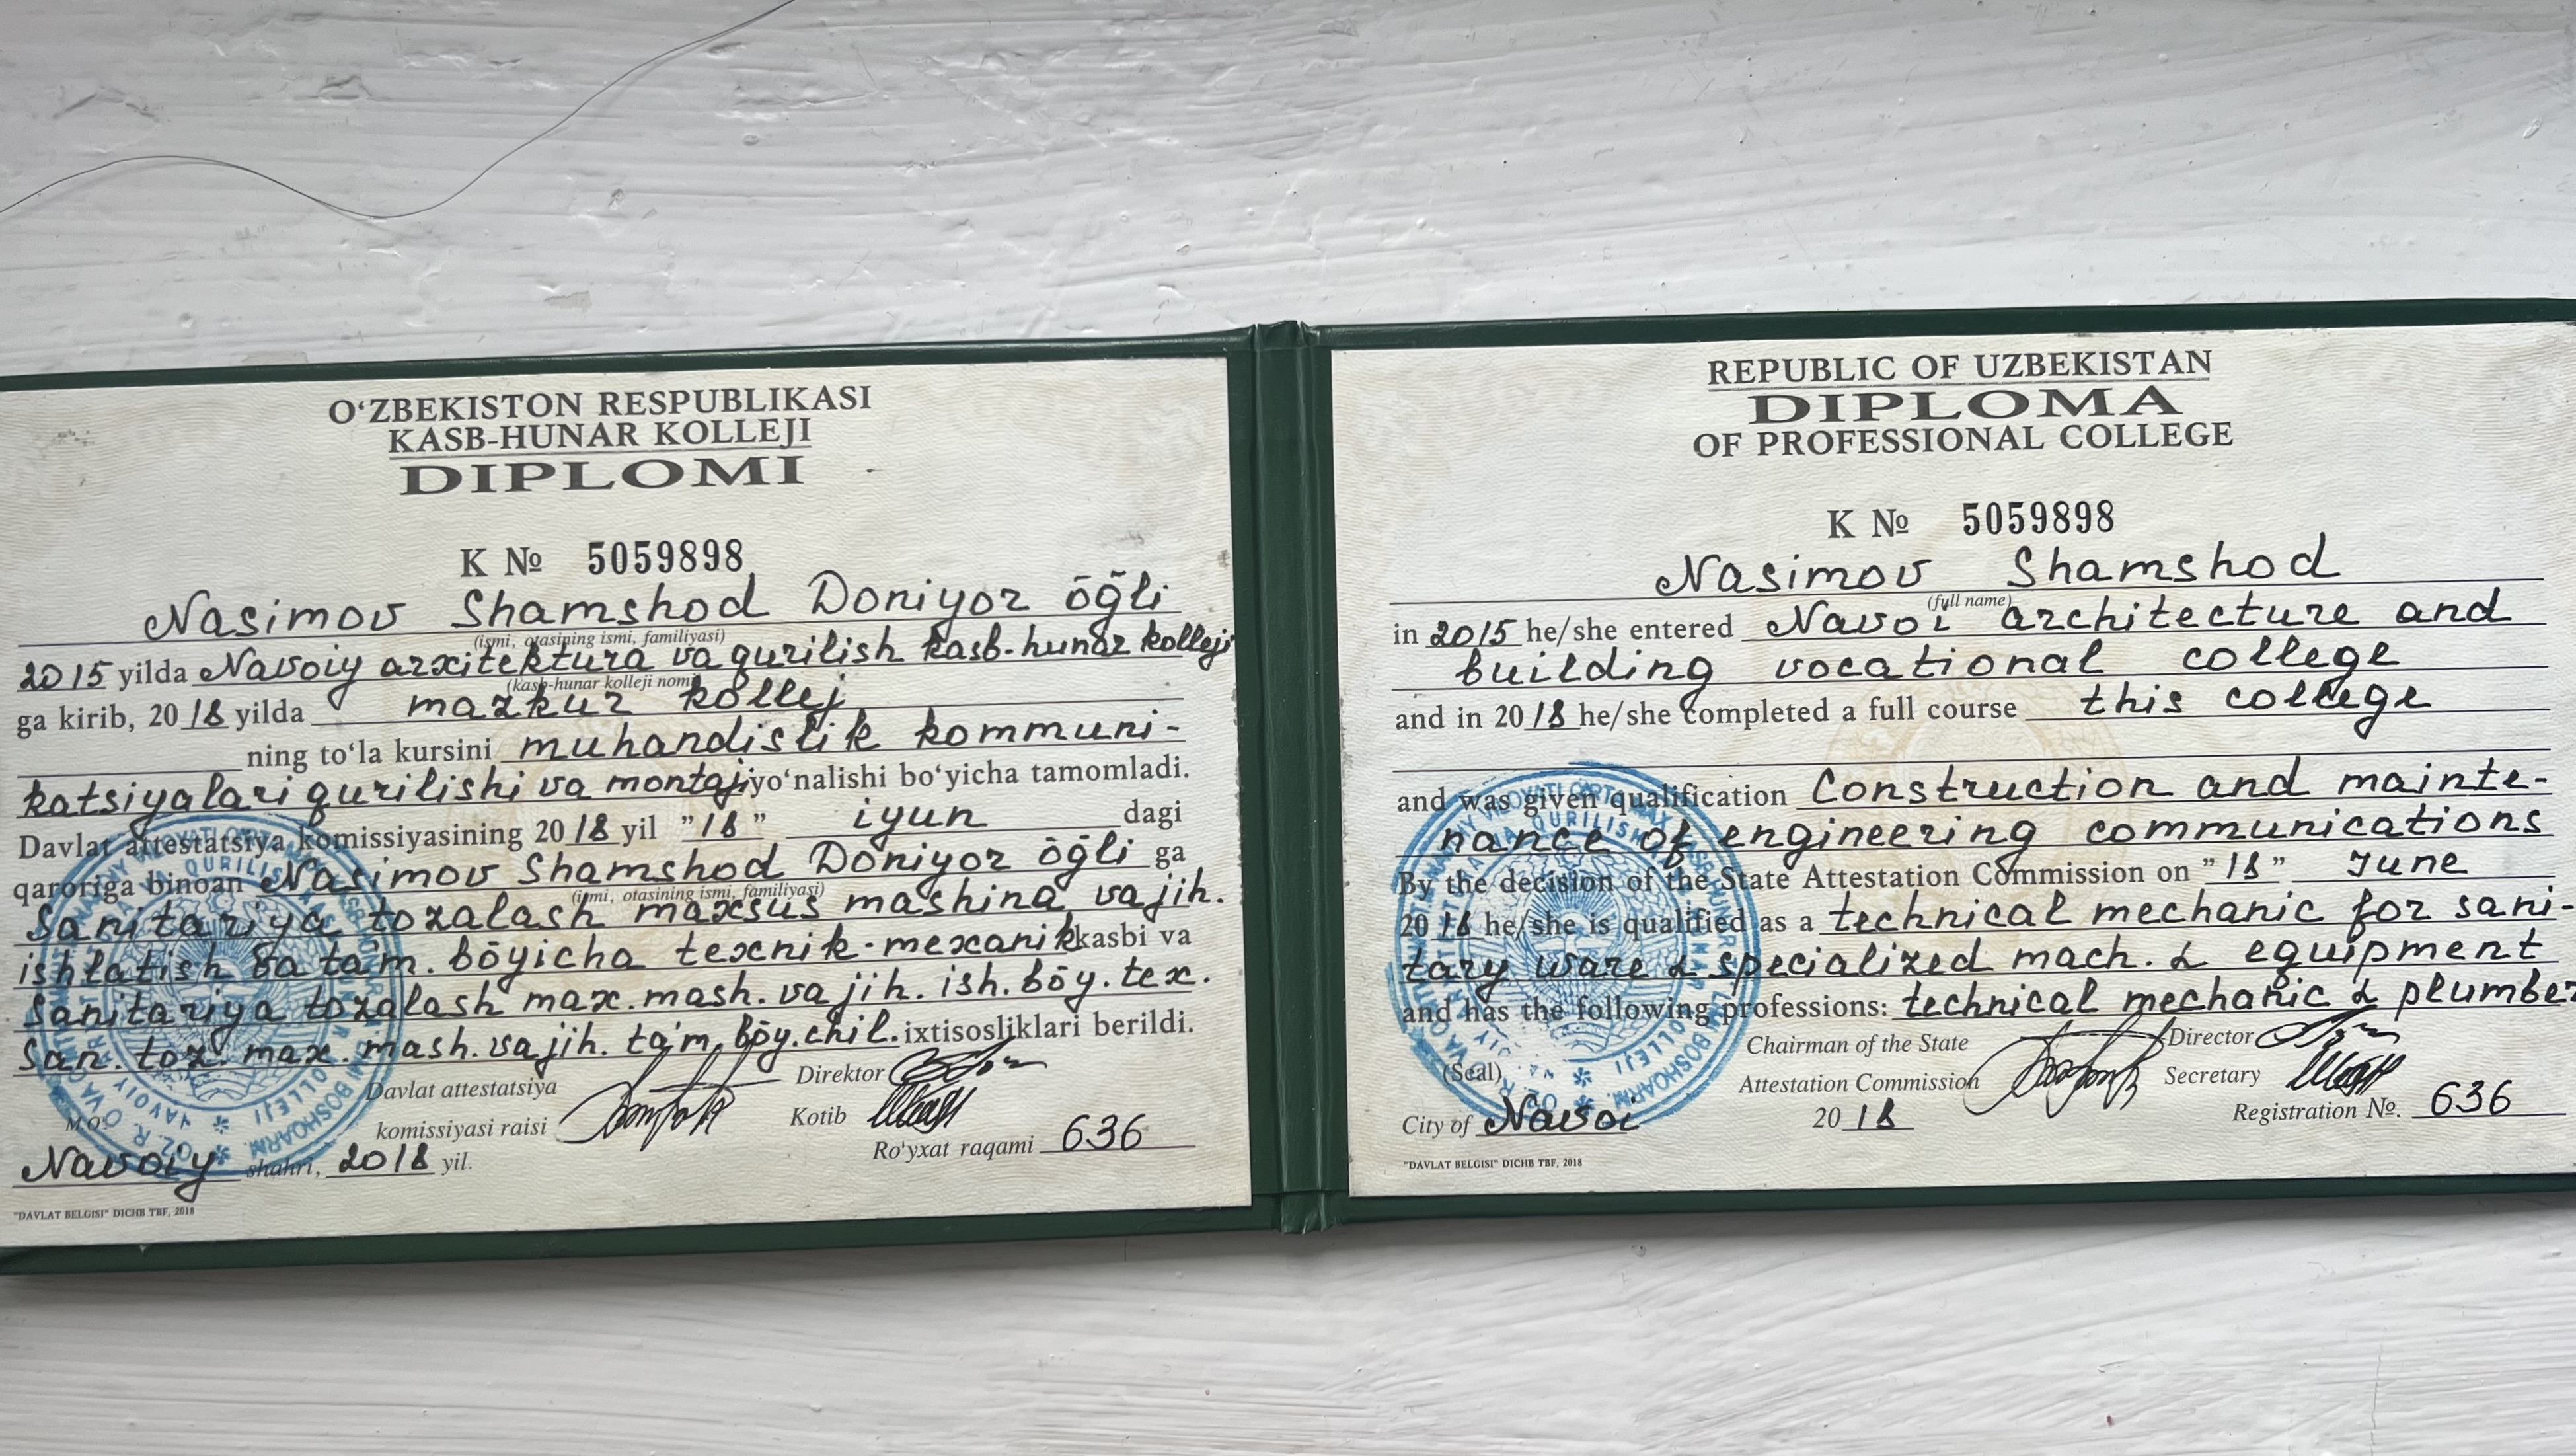 O‘ZBEKISTON RESPUBLIKASI
KASB-HUNAR KOLLEJI
DIPLOMI
K № 5059898
Nasimov Shamshod Doniyor ōḡli
(ismi, otasining ismi, familiyasi)
2015 yilda Navoiy arxitektura va qurilish kasb-hunar kolleji
(kasb-hunar kolleji nomi)
ga kirib, 2018 yilda mazkur kollej
ning to‘la kursini muhandislik kommuni-
katsiyalari qurilishi va montaji yo‘nalishi bo‘yicha tamomladi.
Davlat attestatsiya komissiyasining 2018 yil "18" iyun dagi
qaroriga binoan Nasimov Shamshod Doniyor ōḡli ga
(ismi, otasining ismi, familiyasi)
Sanitariya tozalash maxsus mashina va jih.
ishlatish va tam. bōyicha texnik-mexanik kasbi va
Sanitariya tozalash max. mash. va jih. ish. bōy. tex.
San. toz. max. mash. va jih. ta'm. bōy. chil. ixtisosliklari berildi.
Davlat attestatsiya
komissiyasi raisi
Direktor
Kotib
M.O‘.
Ro‘yxat raqami 636
Navoiy shahri, 2018 yil.
"DAVLAT BELGISI" DICHB TBF, 2018
REPUBLIC OF UZBEKISTAN
DIPLOMA
OF PROFESSIONAL COLLEGE
K № 5059898
Nasimov Shamshod
(full name)
in 2015 he/she entered Navoi architecture and
building vocational college
and in 2018 he/she completed a full course this college
and was given qualification Construction and mainte-
nance of engineering communications
By the decision of the State Attestation Commission on "18" June
2018 he/she is qualified as a technical mechanic for sani-
tary ware & specialized mach. & equipment
and has the following professions: technical mechanic & plumber
Chairman of the State
Attestation Commission
Director
Secretary
(Seal)
City of Navoi
2018
Registration №. 636
"DAVLAT BELGISI" DICHB TBF, 2018